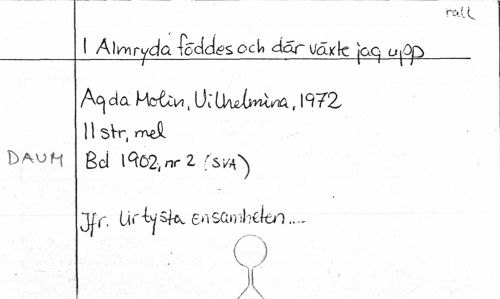 rall
I Almryda föddes och där växte jag upp
Agda Molin, Vilhelmina, 1972
11 str, mel
DAUM Bd 1902, nr 2 (SVA)
Jfr. Ur tysta ensamheten....